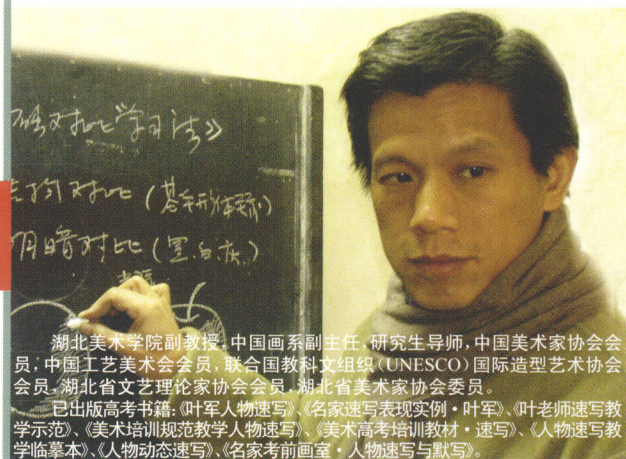 对比“学习法》
结构对比(基本形体球)
明暗对比(黑.白.灰.)
湖北美术学院副教授,中国画系副主任,研究生导师,中国美术家协会会
员,中国工艺美术会会员,联合国教科文组织(UNESCO)国际造型艺术协会
会员,湖北省文艺理论家协会会员,湖北省美术家协会委员。
已出版高考书籍:《叶军人物速写》、《名家速写表现实例·叶军》、《叶老师速写教
学示范》、《美术培训规范教学人物速写》、《美术高考培训教材·速写》、《人物速写教
学临摹本》、《人物动态速写》、《名家考前画室·人物速写与默写》。